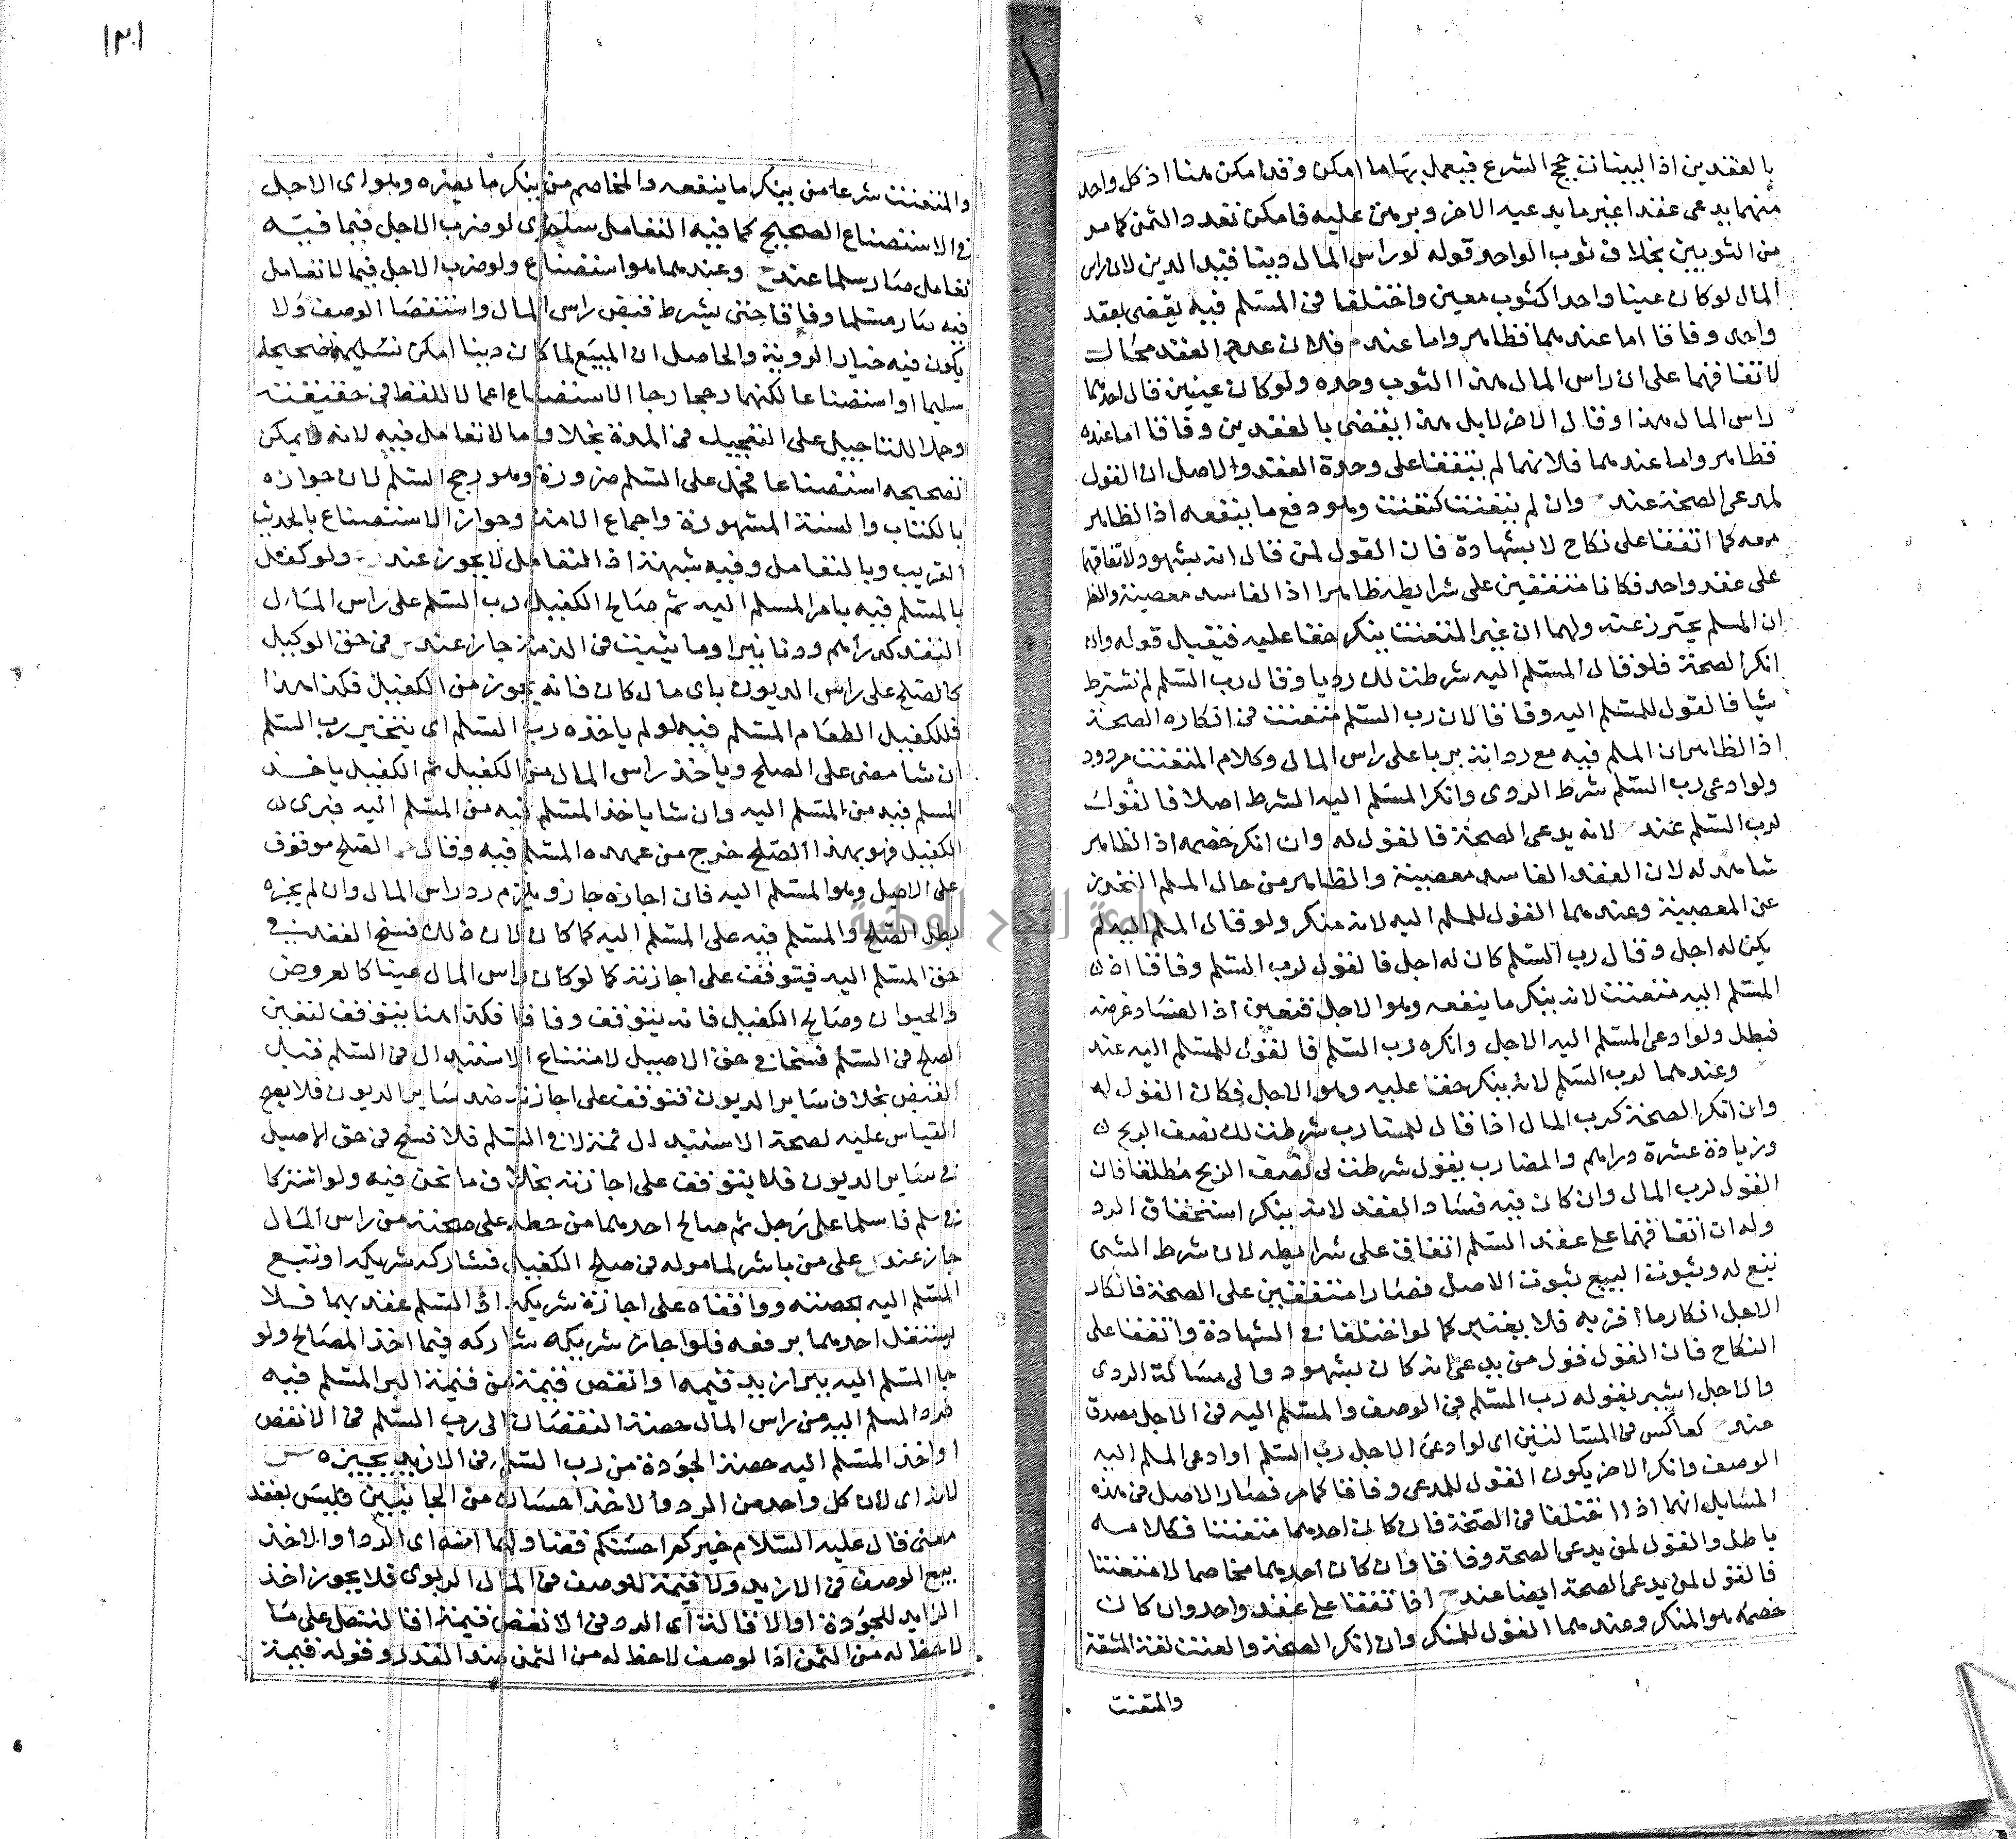 بالعقدين اذ البينات حجج الشرع فيعمل بها ما امكن وقد امكن هنا اذ كل واحد
منهما يدعى عقدا غير ما يدعيه الاخر وبرهن عليه فامكن تعدد الثمن كما مر
من الثوبين بخلاف ثوب الواحد قوله لو راس المال دينا قيد الدين لان راس
المال لو كان عينا واحدا كثوب معين واختلفا فى المسلم فيه يقضى بعقد
واحد وفاقا اما عندهما فظاهر واما عند فلان عدم العقد محال
لاتفاقهما على ان راس المال هذا الثوب وحده ولو كان عينين قال احدهما
راس المال هذا وقال الاخر لا بل هذا يقضى بالعقدين وفاقا اما عنده
فظاهر واما عندهما فلانهما لم يتفقا على وحدة العقد والاصل ان القول
لمدعى الصحة عند وان لم يتعنت كتعنت وهو دفع ما ينفعه اذ الظاهر
معه كما اتفقا على نكاح لا بشهادة فان القول لمن قال انه بشهود لاتفاقهما
على عقد واحد فكانا متفقين على شرايطه ظاهرا اذ الفاسد معصية والظا
ان المسلم يحترز عنه ولهما ان غير المتعنت ينكر حقا عليه فيقبل قوله وان
انكر الصحة فلو قال المسلم اليه شرطت لك رديا وقال رب السلم لم تشترط
شيا فالقول للمسلم اليه وفاقا لان رب السلم متعنت فى انكاره الصحة
اذ الظاهر ان المسلم فيه مع رداته يربا على راس المال وكلام المتعنت مردود
ولو ادعى رب السلم شرط الردى وانكر المسلم اليه الشرط اصلا فالقول
لرب السلم عند لانه يدعى الصحة فالقول له وان انكر خصمه اذ الظاهر
شاهد له لان العقد الفاسد معصية والظاهر من حال المسلم التحرز
عن المعصية وعندهما القول للمسلم اليه لانه منكر ولو قال المسلم اليه لم
يكن له اجل وقال رب السلم كان له اجل فالقول لرب السلم وفاقا اذ
المسلم اليه متعنت لانه ينكر ما ينفعه وهو الاجل فتعين اذ الفساد غرضه
فبطل ولو ادعى المسلم اليه الاجل وانكره رب السلم فالقول للمسلم اليه عند
وعندهما لرب السلم لانه ينكر حقا عليه وهو الاجل فكان القول له
وان انكر الصحة كرب المال اذا قال للمضارب شرطت لك نصف الربح
وزيادة عشرة دراهم والمضارب يقول شرطت لى نصف الربح مطلقا فان
القول لرب المال وان كان فيه فساد العقد لانه ينكر استحقاق الرد
وله ان اتفاقهما على عقد السلم اتفاق على شرايطه لان شرط الشى
تبع له وثبوت البيع بثبوت الاصل فصارا متفقين على الصحة فانكار
الاجل انكار ما اقر به فلا يعتبر كما لو اختلفا فى الشهادة واتفقا على
النكاح فان القول قول من يدعى انه كان بشهود والى مسالة الردى
والاجل اشير بقوله رب السلم فى الوصف والمسلم اليه فى الاجل مصدق
عند كعاكس فى المسالتين اى لو ادعى الاجل رب السلم او ادعى المسلم اليه
الوصف وانكر الاخر يكون القول للمدعى وفاقا كما مر فصار الاصل فى هذه
المسايل انهما اذا اختلفا فى الصحة فان كان احدهما متعنتا فكلامه
باطل والقول لمن يدعى الصحة وفاقا وان كان احدهما مخاصما لا متعنتا
فالقول لمن يدعى الصحة ايضا عند اذا اتفقا على عقد واحد وان كان
خصمه هو المنكر وعندهما القول للمنكر وان انكر الصحة والعنت لغة المشقة
والمتعنت
١٣١
والمتعنت شرعا من ينكر ما ينفعه والمخاصم من ينكر ما يضره وهو اى الاجل
فى الاستصناع الصحيح كما فيه التعامل سلم اى لو ضرب الاجل فيما فيه
تعامل صار سلما عند وعندهما هو استصناع ولو ضرب الاجل فيما لا تعامل
فيه صار مسلما وفاقا حتى يشرط قبض راس المال واستقصا الوصف ولا
يكون فيه خيار الروية والحاصل ان المبيع لما كان دينا امكن تصحيحه
سلما او استصناعا لكنهما رجحا رجا الاستصناع اعمالا للفظ فى حقيقته
وحملا للتاجيل على التعجيل فى المدة بخلاف ما لا تعامل فيه لانه لا يمكن
تصحيحه استصناعا فحمل على السلم ضرورة وهو رجح السلم لان جوازه
بالكتاب والسنة المشهورة واجماع الامة وجواز الاستصناع بالحديث
القريب وبالتعامل وفيه شبهة اذ التعامل لا يجوز عند ولو كفل
بالمسلم فيه بامر المسلم اليه ثم صالح الكفيل رب السلم على راس المال
النقد كدراهم ودنانير او ما يثبت فى الذمة جاز عند فى حق الوكيل
كالصلح على راس الديون باى مال كان فانه يجوز من الكفيل فكذا هذا
فللكفيل الطعام المسلم فيه لو لم ياخذه رب السلم اى يتخير رب السلم
ان شا مضى على الصلح وياخذ راس المال من الكفيل ثم الكفيل ياخذ
المسلم فيه من المسلم اليه وان شا ياخذ المسلم فيه من المسلم اليه فبرى
الكفيل فهو بهذا الصلح خرج من عهده المسلم فيه وقال الصلح موقوف
على الاصيل وهو المسلم اليه فان اجازه جاز ويلزم رد راس المال وان لم يجزه
بطل الصلح والمسلم فيه على المسلم اليه كما كان لان ذلك فسخ العقد فى
حق المسلم اليه فيتوقف على اجازته كما لو كان راس المال عينا كالعروض
والحيوان وصالح الكفيل فانه يتوقف وفاقا فكذا هنا يتوقف لتعين
الصلح فى السلم فسخا فى حق الاصيل لامتناع الاستبدال فى السلم قبل
القبض بخلاف ساير الديون فتوقف على اجازته ضد ساير الديون فلا يصح
القياس عليه لصحة الاستبدال ثمة لا فى السلم فلا فسخ فى حق الاصيل
فى ساير الديون فلا يتوقف على اجازته بخلاف ما نحن فيه ولو اشتركا
فى سلم فاسلما على رجل ثم صالح احدهما من حطه على حصته من راس المال
جاز عند على من باشر لما مر له فى صلح الكفيل فشاركه شريكه او تبع
المسلم اليه بحصته ووافقاه على اجازة شريكه اذ السلم عقد بهما فلا
يستقل احدهما برفعه فلو اجاز شريكه شاركه فيما اخذ المصالح ولو
جا المسلم اليه ببر ازيد قيمه او انقص قيمة من قيمة البر المسلم فيه
فرد المسلم اليه من راس المال حصة النقصان الى رب السلم فى الانقص
او اخذ المسلم اليه حصة الجودة من رب السلم فى الازيد يجيزه س
لانه اى لان كل واحد من الرد والاخذ احسان من الجانبين وليس بعقد
معنى قال عليه السلام خيركم احسنكم قضا ولهما انه اى الرد والاخذ
بيع الوصف فى الازيد ولا قيمة للوصف فى المال الربوى فلا يجوز اخذ
الزايد للجودة او الاقالة اى الرد فى الانقص قيمة اقالة على ما
لا حظ له من الثمن اذ الوصف لا حظ له من الثمن ضد القدر وقوله قيمة
جامعة النجاح الوطنية